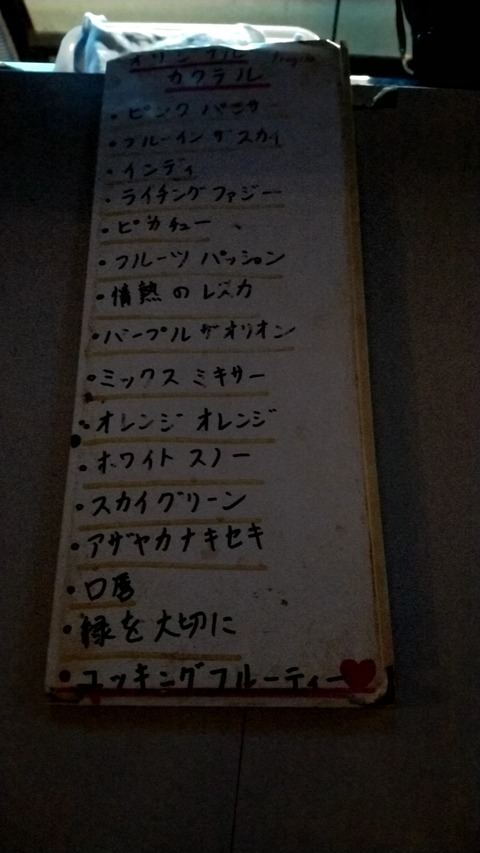 オリジナル
カクテル
・ピンク パンサー
・ブルーイン ザ スカイ
・インディ
・ライチング ファジー
・ピカチュー
・フルーツ パッション
・情熱 の レズカ
・パープル ザ オリオン
・ミックス ミキサー
・オレンジ オレンジ
・ホワイト スノー
・スカイグリーン
・アザヤカナキセキ
・口唇
・縁を大切に
・ユッキングフルーティー